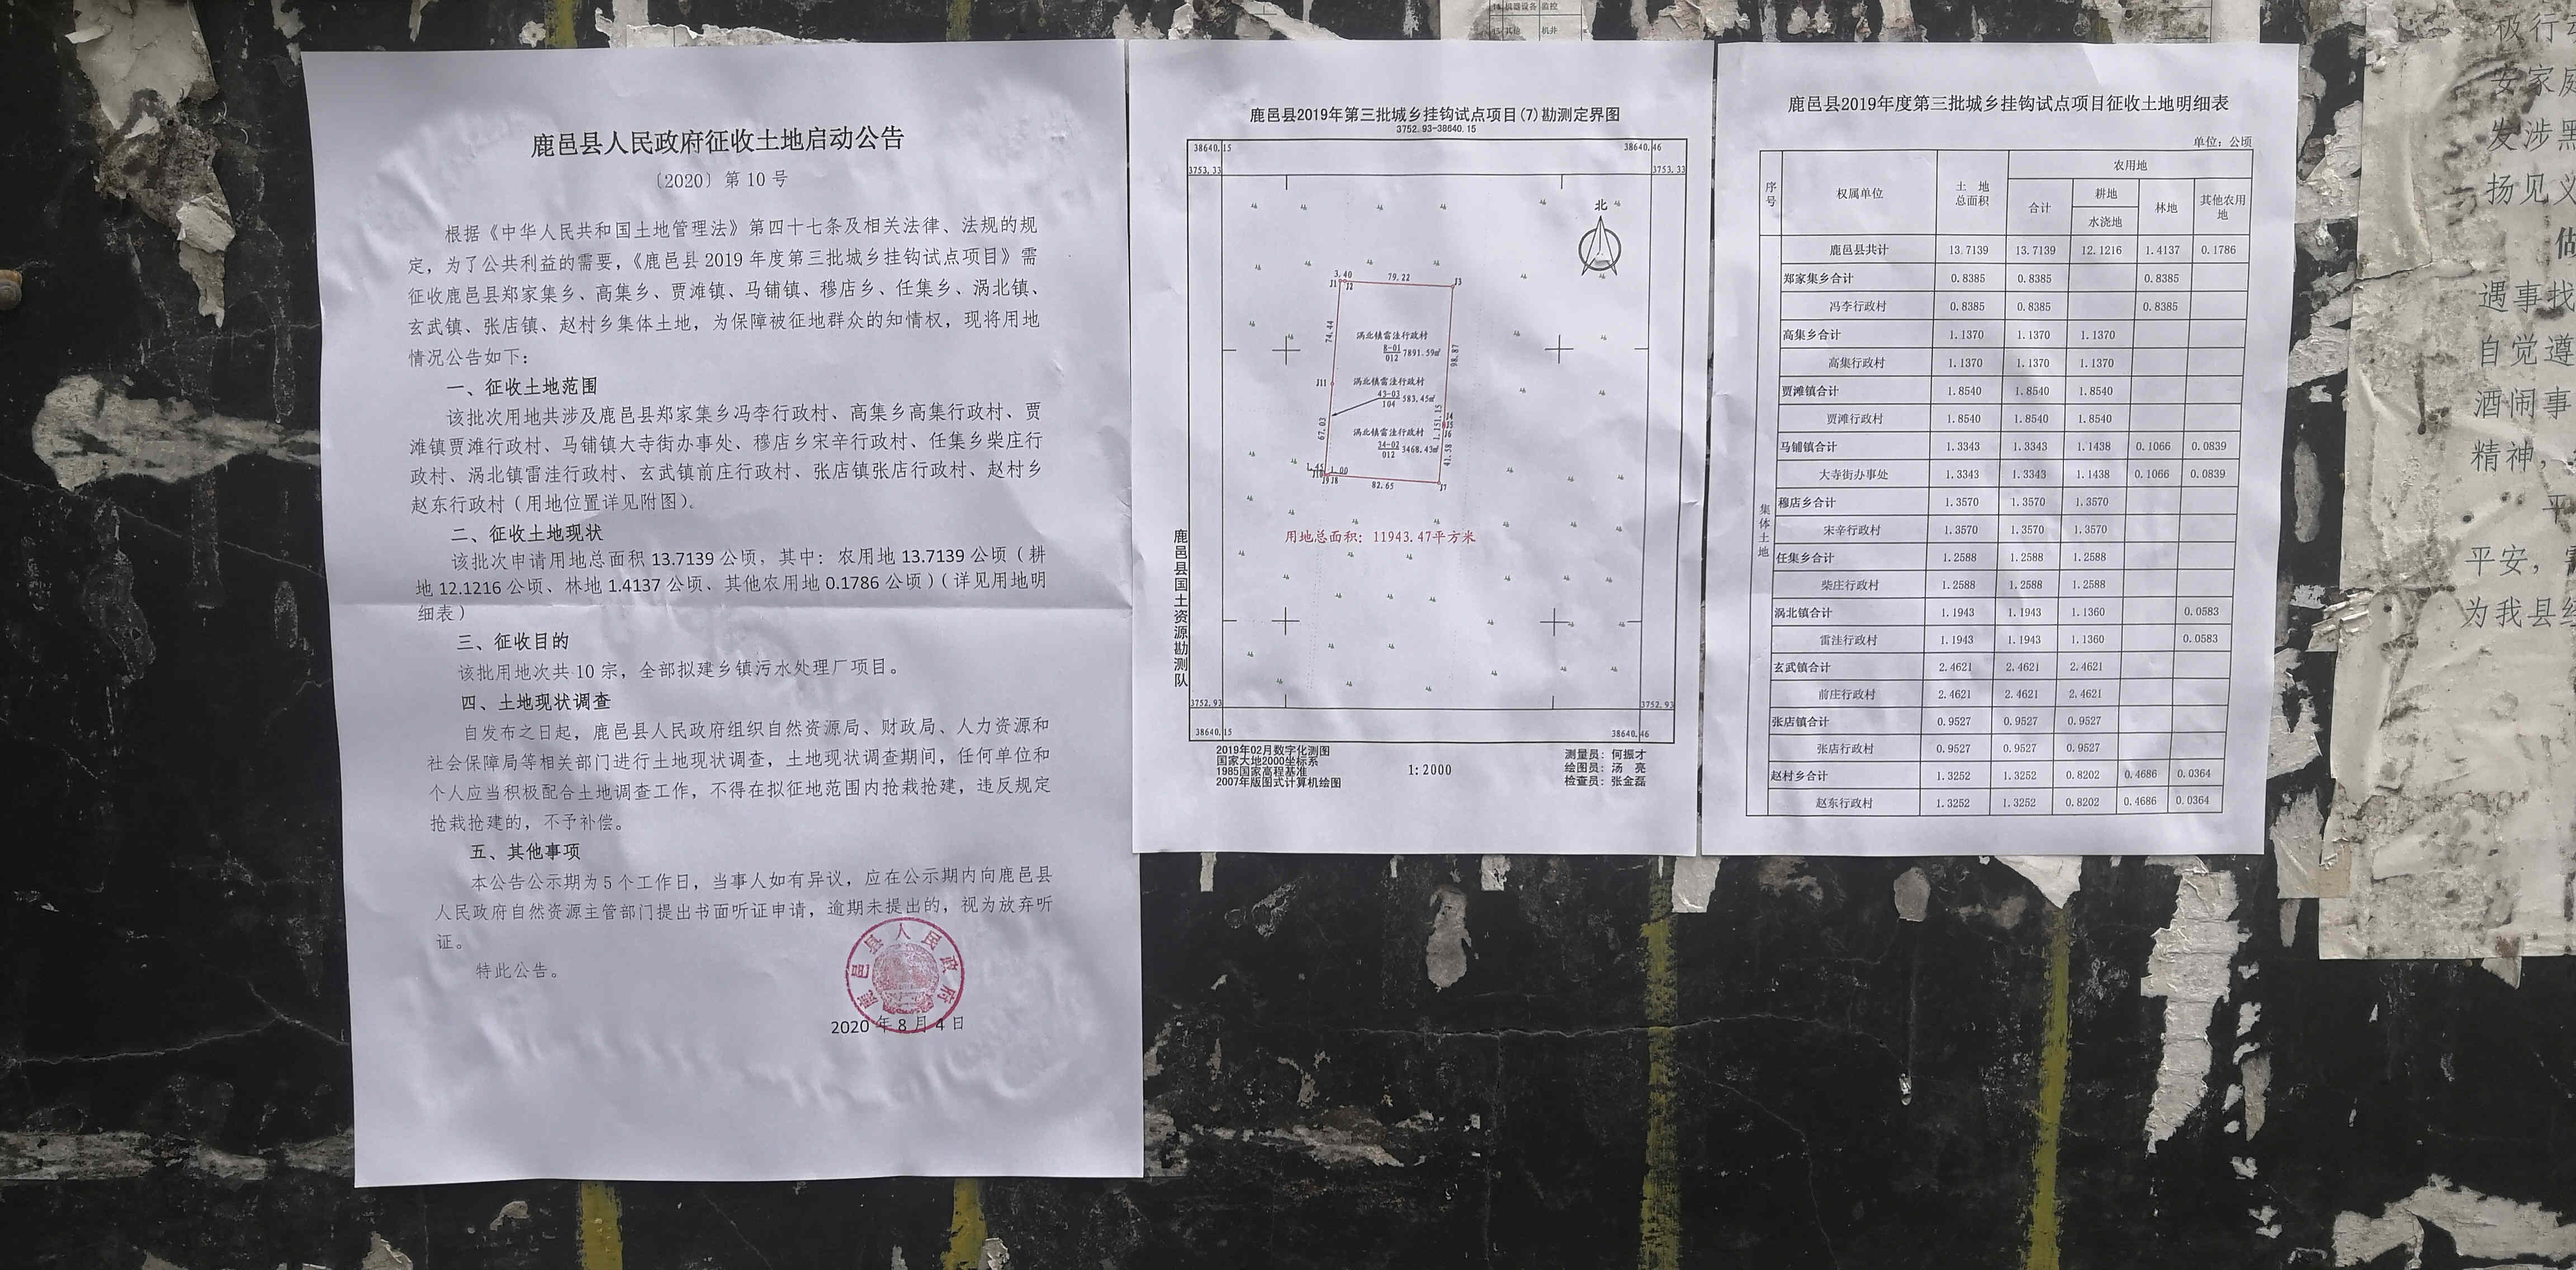 鹿邑县人民政府征收土地启动公告
〔2020〕第 10 号
根据《中华人民共和国土地管理法》第四十七条及相关法律、法规的规
定，为了公共利益的需要，《鹿邑县 2019 年度第三批城乡挂钩试点项目》需
征收鹿邑县郑家集乡、高集乡、贾滩镇、马铺镇、穆店乡、任集乡、涡北镇、
玄武镇、张店镇、赵村乡集体土地，为保障被征地群众的知情权，现将用地
情况公告如下：
一、征收土地范围
该批次用地共涉及鹿邑县郑家集乡冯李行政村、高集乡高集行政村、贾
滩镇贾滩行政村、马铺镇大寺街办事处、穆店乡宋辛行政村、任集乡柴庄行
政村、涡北镇雷洼行政村、玄武镇前庄行政村、张店镇张店行政村、赵村乡
赵东行政村（用地位置详见附图）。
二、征收土地现状
该批次申请用地总面积 13.7139 公顷，其中：农用地 13.7139 公顷（耕
地 12.1216 公顷、林地 1.4137 公顷、其他农用地 0.1786 公顷）（详见用地明
细表）
三、征收目的
该批用地次共 10 宗，全部拟建乡镇污水处理厂项目。
四、土地现状调查
自发布之日起，鹿邑县人民政府组织自然资源局、财政局、人力资源和
社会保障局等相关部门进行土地现状调查，土地现状调查期间，任何单位和
个人应当积极配合土地调查工作，不得在拟征地范围内抢栽抢建，违反规定
抢栽抢建的，不予补偿。
五、其他事项
本公告公示期为 5 个工作日，当事人如有异议，应在公示期内向鹿邑县
人民政府自然资源主管部门提出书面听证申请，逾期未提出的，视为放弃听
证。
特此公告。
鹿邑县人民政府
2020 年 8 月 4 日
鹿邑县2019年第三批城乡挂钩试点项目(7)勘测定界图
3752.93-38640.15
38640.15 38640.46
3753.33 3753.33
北
3.40 79.22
J1 J2 J3
74.44
涡北镇雷洼行政村
8-01
012 7891.59㎡
98.87
J11
涡北镇雷洼行政村
43-03
104 583.45㎡
J4
J5
J6
67.03
涡北镇雷洼行政村
24-02
012 3468.43㎡
41.58
J9 J8
82.65
J7
用地总面积：11943.47平方米
鹿邑县国土资源勘测队
3752.93 3752.93
38640.15 38640.46
2019年02月数字化测图
国家大地2000坐标系
1985国家高程基准
2007年版图式计算机绘图
1:2000
测量员：何振才
绘图员：汤 亮
检查员：张金磊
鹿邑县2019年度第三批城乡挂钩试点项目征收土地明细表
单位：公顷
序号 权属单位 土地总面积 农用地
合计 耕地 林地 其他农用地
水浇地
集体土地
鹿邑县共计 13.7139 13.7139 12.1216 1.4137 0.1786
郑家集乡合计 0.8385 0.8385 0.8385
冯李行政村 0.8385 0.8385 0.8385
高集乡合计 1.1370 1.1370 1.1370
高集行政村 1.1370 1.1370 1.1370
贾滩镇合计 1.8540 1.8540 1.8540
贾滩行政村 1.8540 1.8540 1.8540
马铺镇合计 1.3343 1.3343 1.1438 0.1066 0.0839
大寺街办事处 1.3343 1.3343 1.1438 0.1066 0.0839
穆店乡合计 1.3570 1.3570 1.3570
宋辛行政村 1.3570 1.3570 1.3570
任集乡合计 1.2588 1.2588 1.2588
柴庄行政村 1.2588 1.2588 1.2588
涡北镇合计 1.1943 1.1943 1.1360 0.0583
雷洼行政村 1.1943 1.1943 1.1360 0.0583
玄武镇合计 2.4621 2.4621 2.4621
前庄行政村 2.4621 2.4621 2.4621
张店镇合计 0.9527 0.9527 0.9527
张店行政村 0.9527 0.9527 0.9527
赵村乡合计 1.3252 1.3252 0.8202 0.4686 0.0364
赵东行政村 1.3252 1.3252 0.8202 0.4686 0.0364
机器设备 监控
其他 机井
极行
安家庭
发涉黑
扬见义
做
遇事找
自觉遵
酒闹事
精神，
平
平安，
为我县经